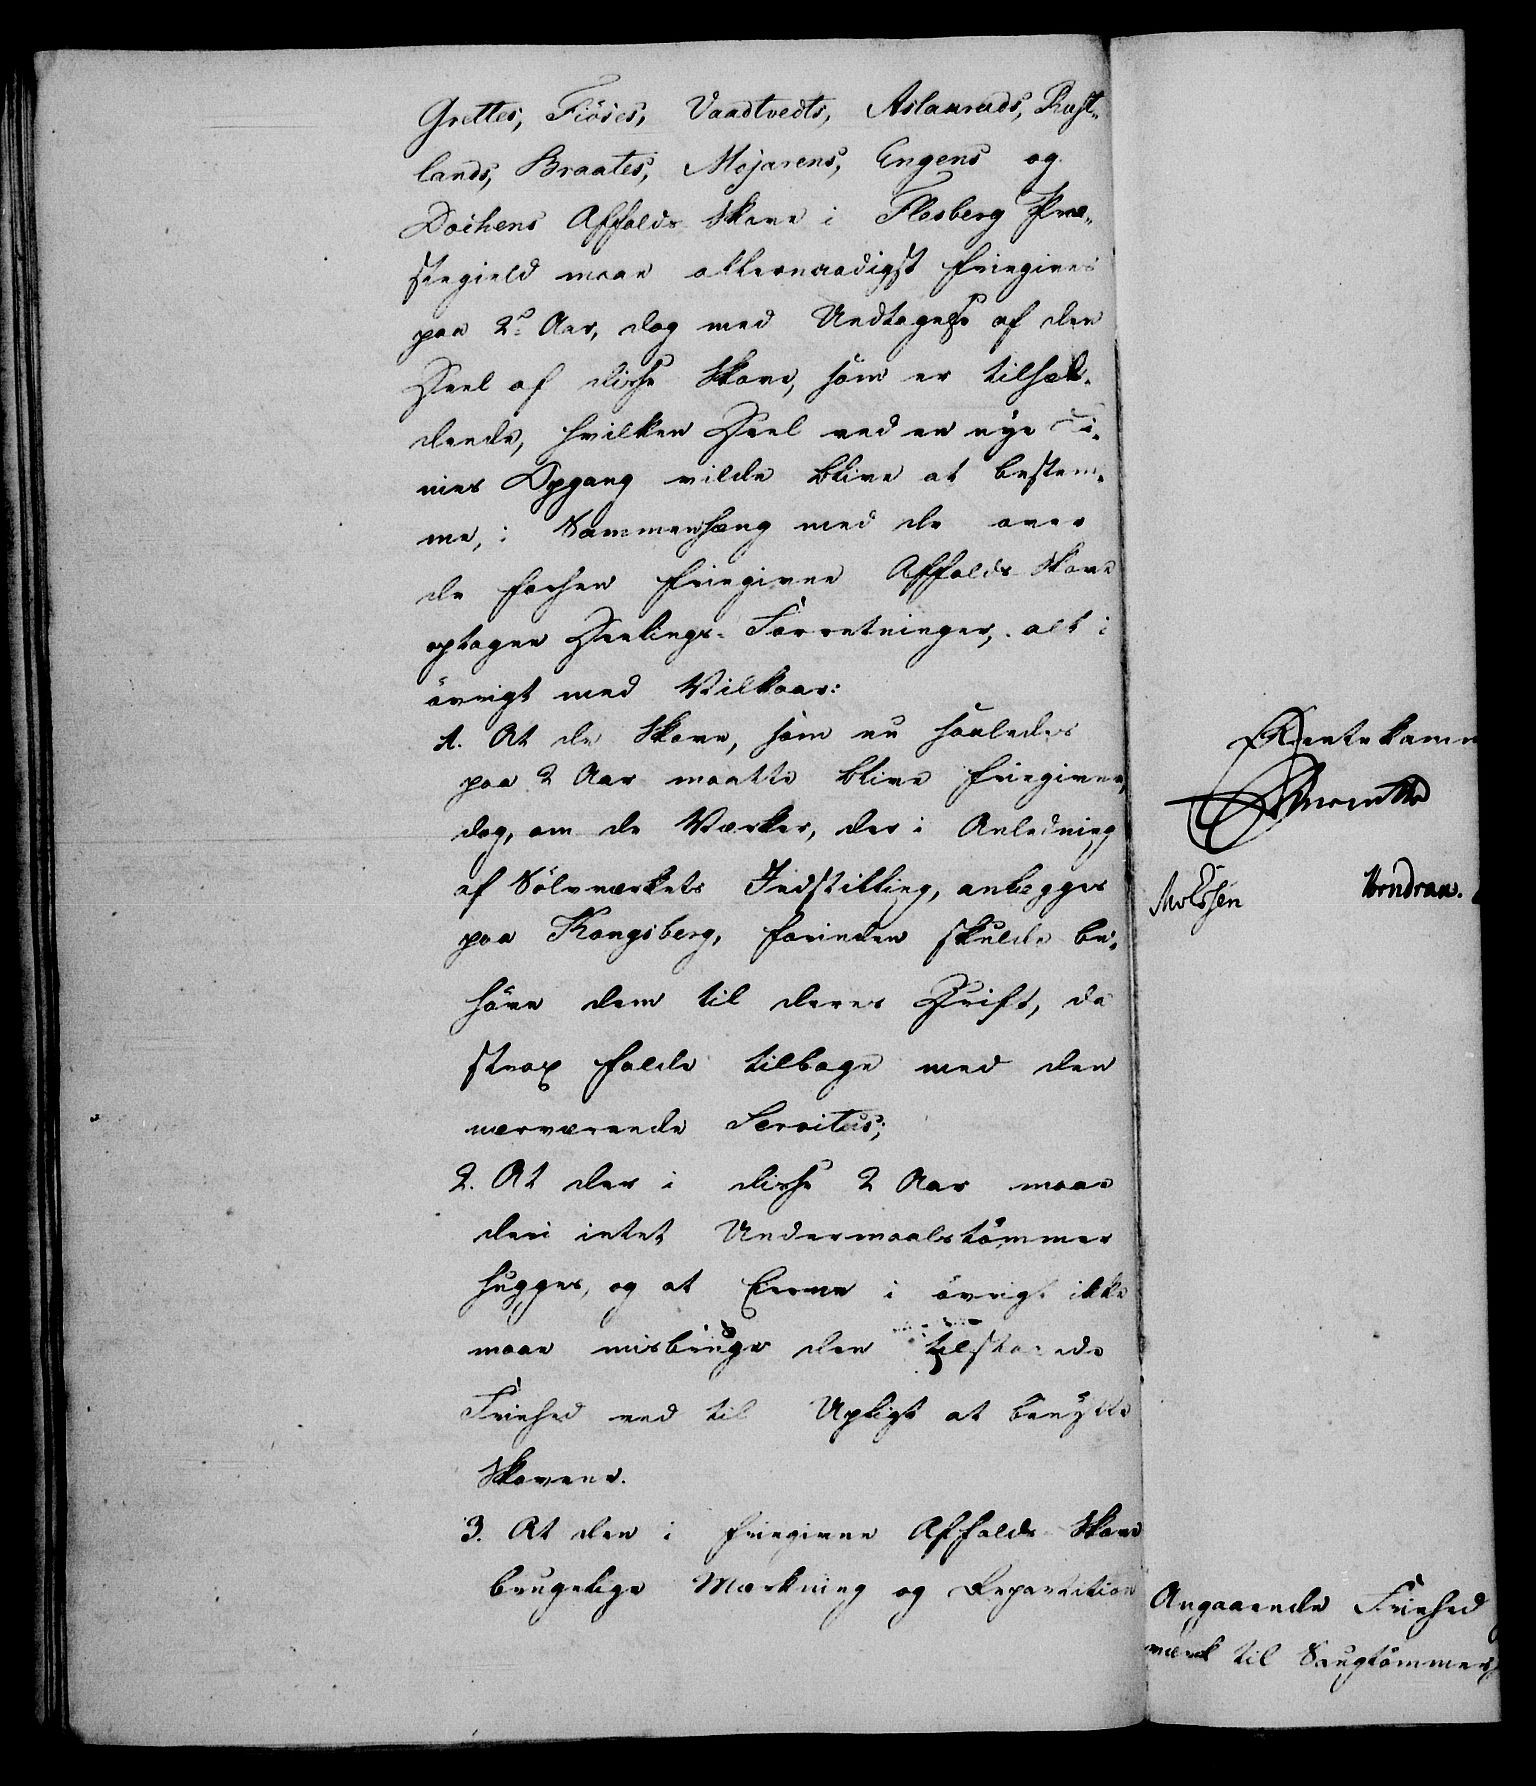 Grettes, Fiöses, Vaadtvedts, Aslaaruds, Rust-
lands, Braates, Mojarens, Engens og
Doihens Affalds Skove i Flesberg Præ-
stegield maae allernaadigst friegives
paa 2de Aar, dog med Undtagelse af den
Deel af disse Skove, som er tilhæl-
dende, hvilken Deel ved en nye Li-
nies Opgang vilde blive at bestem-
me, i Sammenhæng med de over
de forhen friegivne Affalds Skove
optagne Deelings-Forretninger, alt i
övrigt med Vilkaar:
1. At de Skove, som nu saaledes
paa 2 Aar maatte blive friegivne,
dog, om de Værker, der i Anledning
af Sölvværkets Indstilling, anlægges
paa Kongsberg, forinden skulde be-
höve dem til deres Drift, da
strax falde tilbage med den
nærværende Servitus;
2. At der i disse 2 Aar maae
deri intet Undermaalstömmer
hugges, og at Eierne i övrigt ikke
maae misbruge den tilstaaede
Friehed ved til Upligt at benytte
Skovene.
3. At den i friegivne Affalds Skove
brugelige Mærkning og Repartition
Rentekam
Angaaende Friehed
værk til Saugtömmer